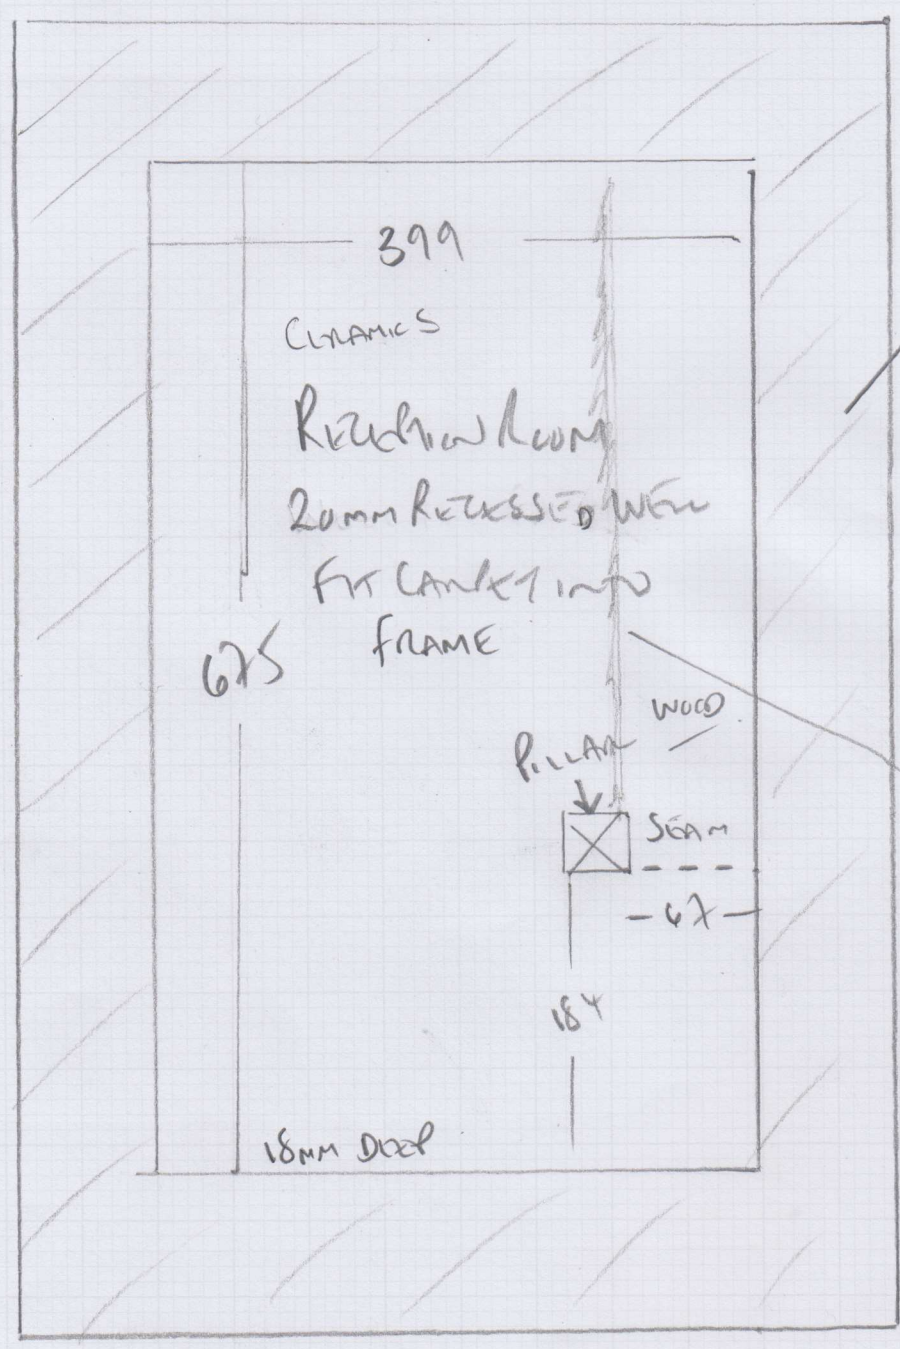 399
CERAMICS
RECEPTION ROOM
20mm RECESSED WELL
FIT CARPET INTO
FRAME
675
WOOD
PILLAR
SEAM
67
184
18mm DEEP